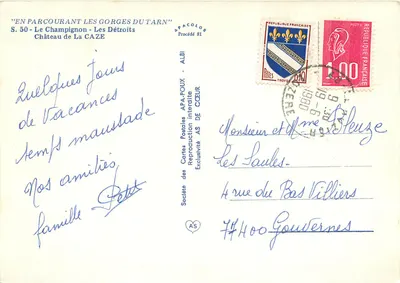 "EN PARCOURANT LES GORGES DU TARN"
S. 50 - Le Champignon - Les Détroits
Château de La CAZE
APACOLOR
Procédé
Quelques jours
de vacances
temps maussade
Nos amitiés,
famille Petit
Société des Cartes Postales APA-POUX - ALBI
Reproduction interdite
Exclusivité AS DE CŒUR
AS
FRANÇAISE
1.00
1980
Monsieur et Mme
les Saules-
4 rue du Bas Villiers
77400 Gouvernes